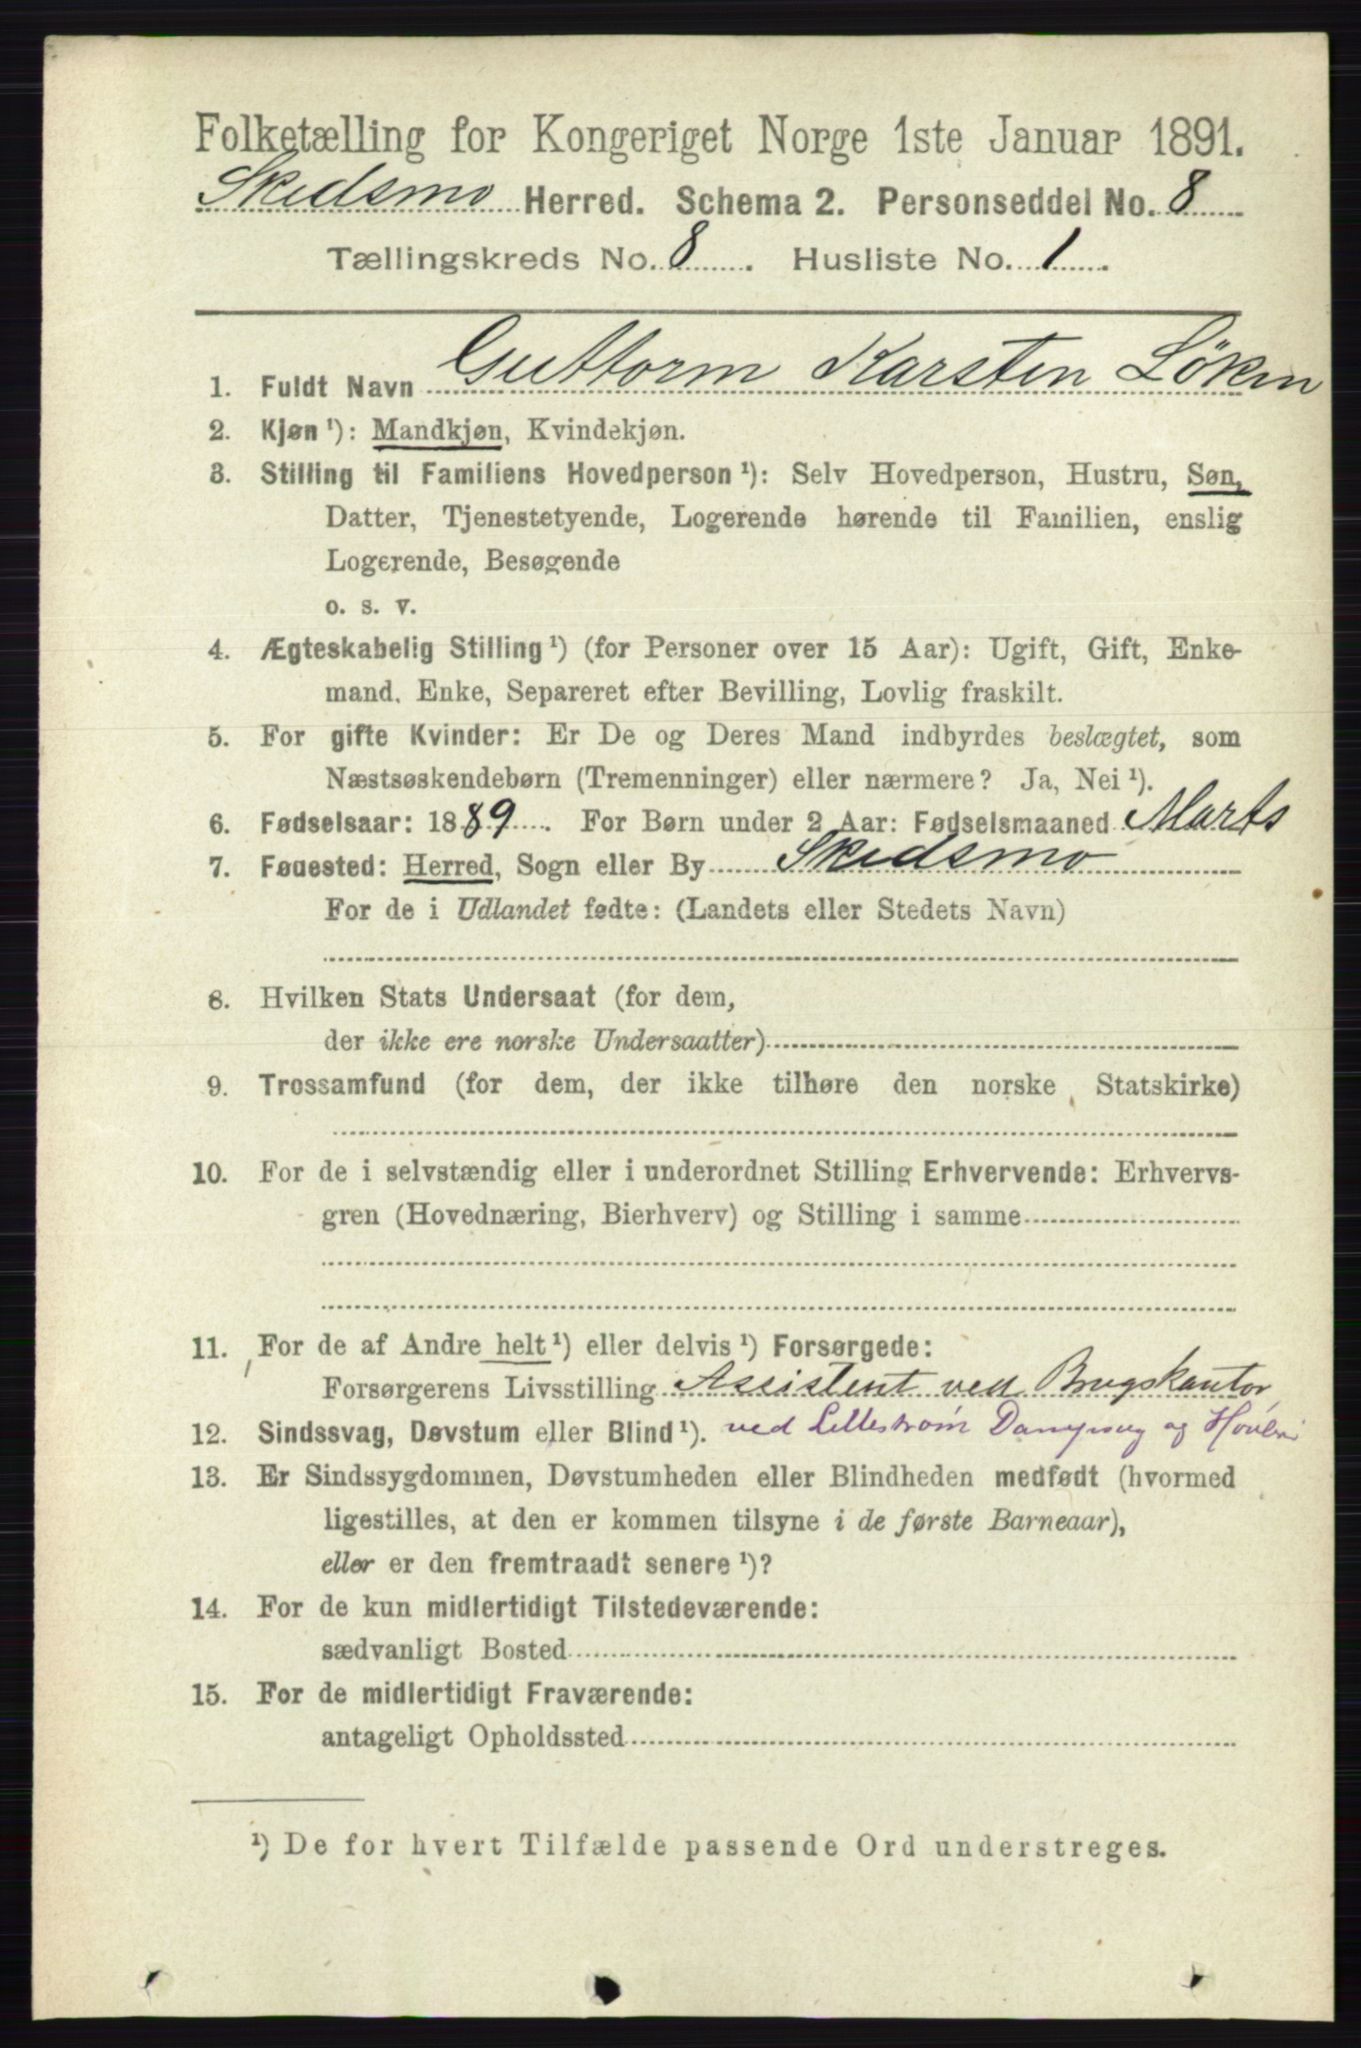 Folketælling for Kongeriget Norge 1ste Januar 1891.
Skedsmo Herred. Schema 2. Personseddel No. 8
Tællingskreds No. 8. Husliste No. 1.
1. Fuldt Navn Guttorm Karsten Løken
2. Kjøn ¹): Mandkjøn, Kvindekjøn.
3. Stilling til Familiens Hovedperson ¹): Selv Hovedperson, Hustru, Søn,
Datter, Tjenestetyende, Logerende hørende til Familien, enslig
Logerende, Besøgende
o. s. v.
4. Ægteskabelig Stilling ¹) (for Personer over 15 Aar): Ugift, Gift, Enke-
mand, Enke, Separeret efter Bevilling, Lovlig fraskilt.
5. For gifte Kvinder: Er De og Deres Mand indbyrdes beslægtet, som
Næstsøskendebørn (Tremenninger) eller nærmere? Ja, Nei ¹).
6. Fødselsaar: 1889. For Børn under 2 Aar: Fødselsmaaned Marts
7. Føuested: Herred, Sogn eller By Skedsmo
For de i Udlandet fødte: (Landets eller Stedets Navn)
8. Hvilken Stats Undersaat (for dem,
der ikke ere norske Undersaatter)
9. Trossamfund (for dem, der ikke tilhøre den norske Statskirke)
10. For de i selvstændig eller i underordnet Stilling Erhvervende: Erhvervs-
gren (Hovednæring, Bierhverv) og Stilling i samme
11. For de af Andre helt ¹) eller delvis ¹) Forsørgede:
Forsørgerens Livsstilling Assistent ved Brugskantor
12. Sindssvag, Døvstum eller Blind ¹). ved Lillestrøm Dampsag og Høvleri
13. Er Sindssygdommen, Døvstumheden eller Blindheden medfødt (hvormed
ligestilles, at den er kommen tilsyne i de første Barneaar),
eller er den fremtraadt senere ¹)?
14. For de kun midlertidigt Tilstedeværende:
sædvanligt Bosted
15. For de midlertidigt Fraværende:
antageligt Opholdssted
¹) De for hvert Tilfælde passende Ord understreges.